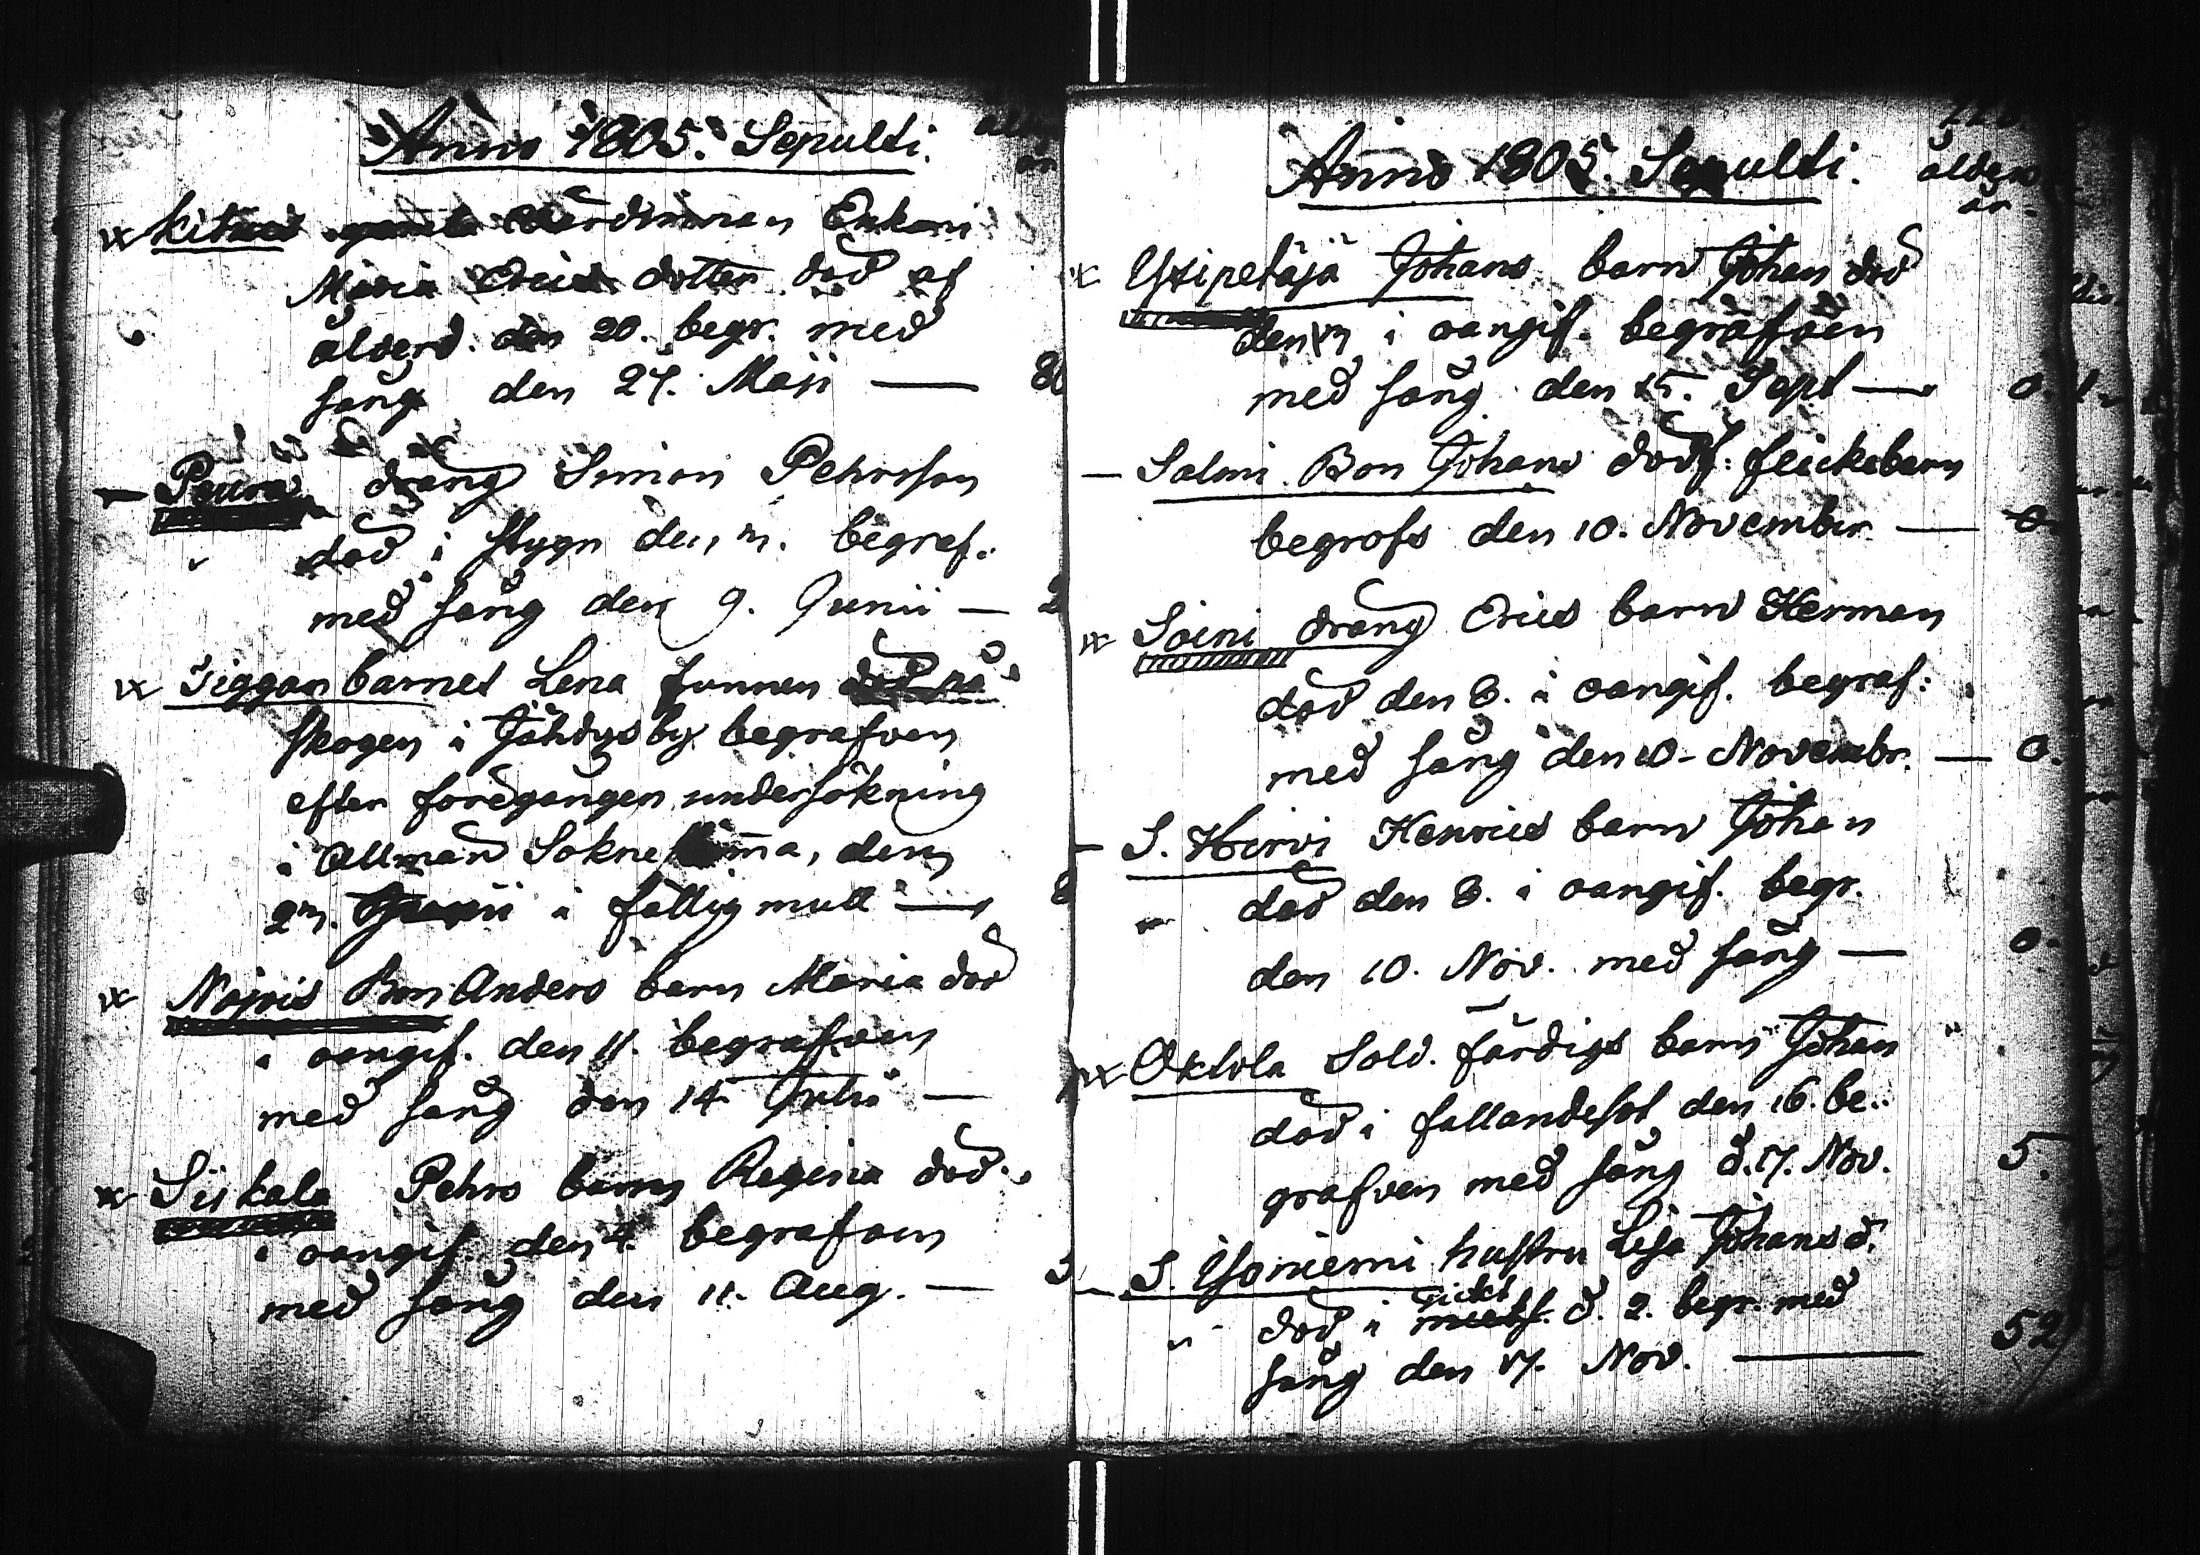 Anno 1805. Sepulti.
Kitua gamla värdinnan Enkan
Maria Erics dotter död af
ålderd. den 20. begr. med
sång den 27. Maji — 80
Peura dräng Simon Pehrsson
död i stygn den 3. begraf.
med sång den 9. Junii — 2
Tiggar barnet Lena funnen död på
skogen i Jåhdysby begrafven
efter föregången undersökning
i Allmän Sokne stämma, den
23. Junii i fattig mull —
Nojvis Bon Anders barn Maria död
i oangif. den 11. begrafven
med sång den 14 Julii —
Siikala Pehrs barn Regina död
i oangif. den 4. begrafven
med sång den 11. Aug. —
Anno 1805. Sepulti. ålder
år.
Yxipetäjä Johans barn Johan död
den 13 i oangif. begrafven
med sång den 15. Sept — 0.
Salmi Bon Johans dödf: flickebarn
begrofs den 10. November — 0
Soini dräng Erics barn Herman
död den 8. i oangif. begraf:
med sång den 10. Novembr. — 0.
S. Hirvi Henrics barn Johan
död den 8. i oangif. begr.
den 10. Nov. med sång — 0.
Oktola Sold. Färdigs barn Johan
död i fallandesot den 16. be-
grafven med sång d. 17. Nov. 5.
S. Yliniemi hustru Lisa Johans d.
död i gikt d. 2. begr. med
sång den 17. Nov. — 52